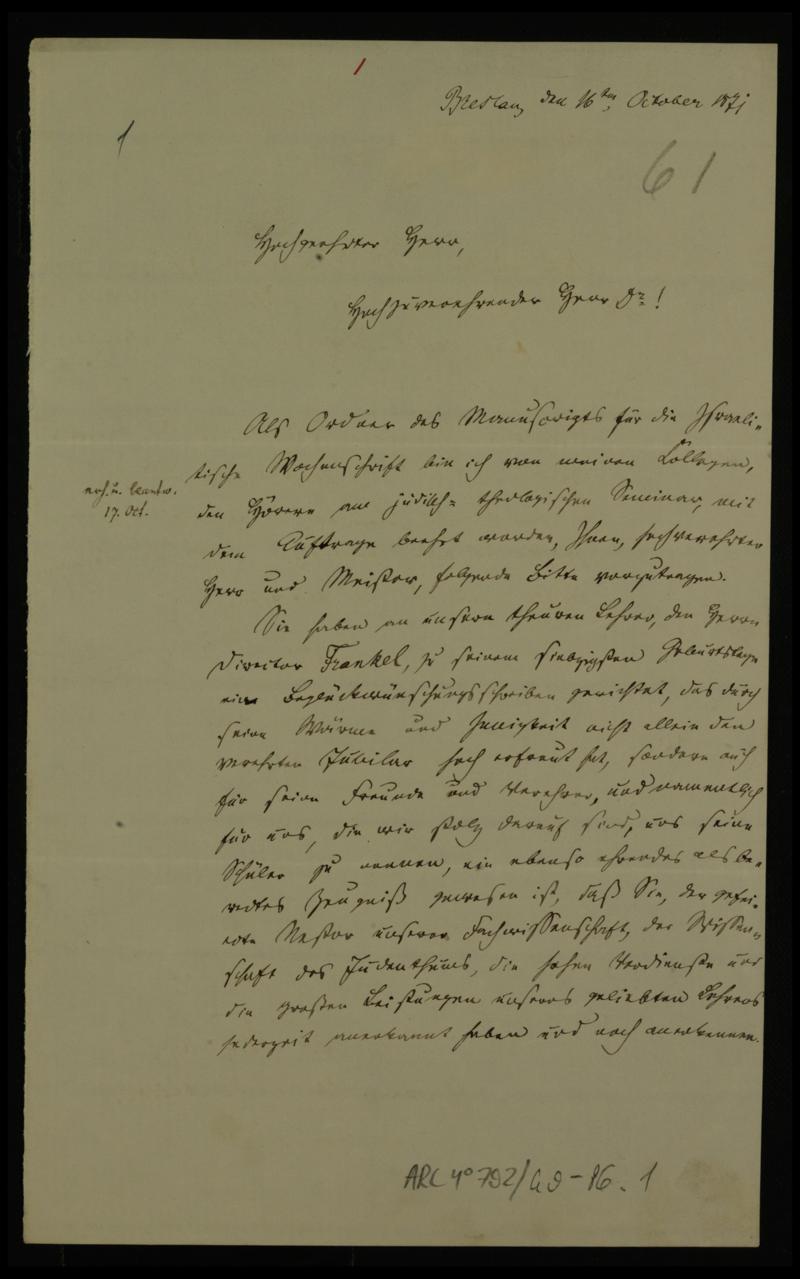 1
Breslau, den 16ten October 1871
1
61
Hochgeehrter Herr,
Hochzuverehrender Herr Dr!
Als Ordner des Manuscripts für die Israeli-
tische Wochenschrift bin ich von meinen Collegen,
erh. u. beantw.
17. Oct.
den Hörern am jüdisch-theologischen Seminar, mit
dem Auftrage beehrt worden, Ihnen, hochverehrter
Herr und Meister, folgende Bitte vorzutragen.
Sie haben an unsern theuren Lehrer, den Herrn
Director Frankel, zu seinem siebzigsten Geburtstage
ein Beglückwünschungsschreiben gerichtet, das durch
seine Wärme und Innigkeit nicht allein den
verehrten Jubilar hoch erfreut hat, sondern auch
für seine Freunde und Verehrer, und namentlich
für uns, die wir stolz darauf sind, uns seine
Schüler zu nennen, ein ebenso ehrendes als be-
redtes Zeugniß gewesen ist, daß Sie, der gefei-
erte Nestor unserer Fachwissenschaft, der Wissen-
schaft des Judenthums, die hohen Verdienste und
die großen Leistungen unseres geliebten Lehrers
jederzeit anerkannt haben und noch anerkennen.
ARC 4° 792/G9-16.1